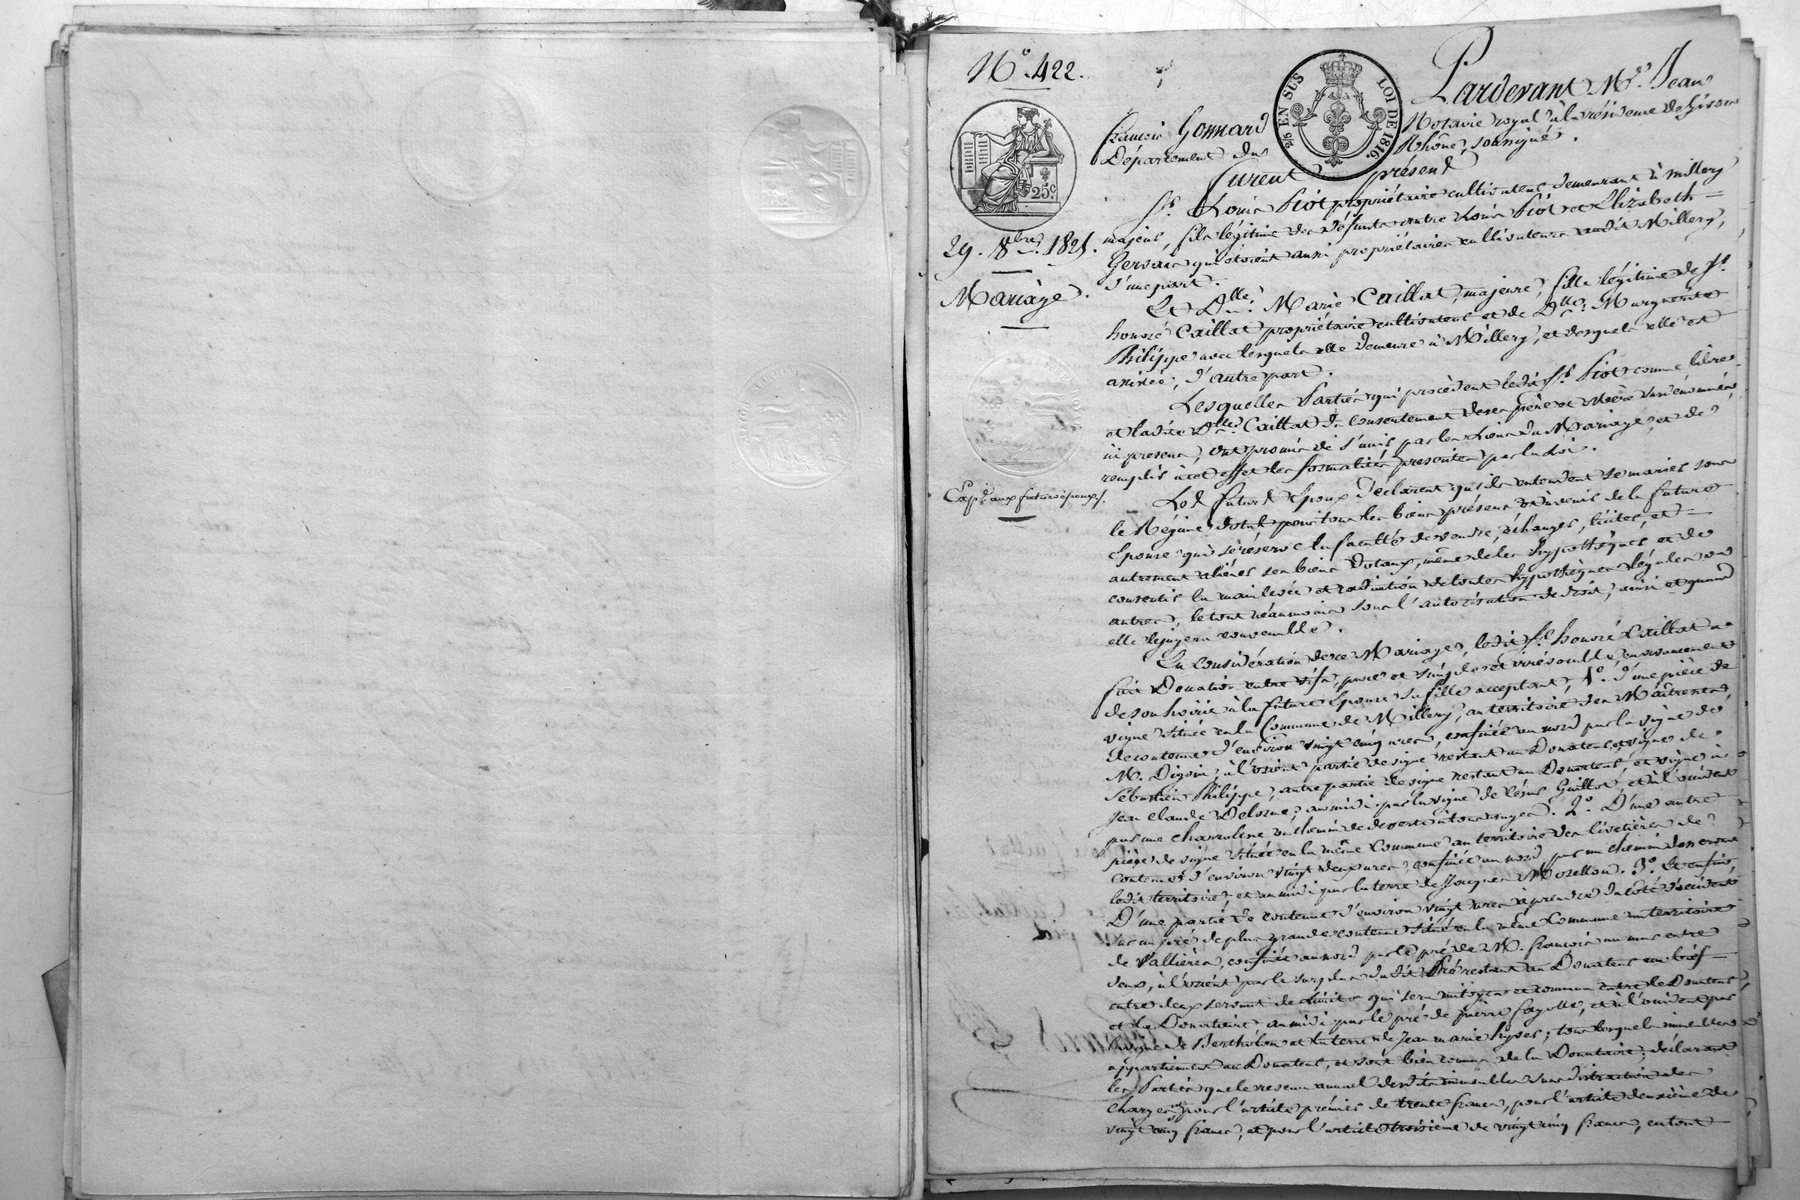 N.° 422.
25 EN SUS LOI DE 1816.
25.c
29. 8bre. 1821.
Mariage.
Exp.é aux futurs époux.
Pardevant M.e Jean
françois Gonnard Notaire royal à la résidence de Givors
Département du Rhône, soussigné.
furent présent
Sr. Louis Piot propriétaire cultivateur demeurant à Millery
majeur, fils légitime des défunts autre Louis Piot et Elizabeth
Gervais qui étoient aussi propriétaires cultivateurs audit Millery,
d'une part.
Et Dlle. Marie Caillat, majeure, fille légitime de Sr.
honoré Caillat propriétaire cultivateur et de De. Marguerite
Philippe avec lesquels elle demeure à Millery, et desquels elle est
assistée, d'autre part.
Lesquelles Parties qui procèdent ledit Sr. Piot comme libre
et ladite Dlle. Caillat du consentement de ses père et Mère susdénommés
ici présens, ont promis de s'unir par les liens du Mariage et de
remplir à cet effet les formalités prescrites par la Loi.
Lesd. futurs Epoux déclarent qu'ils entendent se marier sous
le Régime dotal pour tous les biens présens et à venir de la future
Epouse qui se réserve la faculté de vendre, échanger, liciter, et
autrement aliéner ses biens dotaux, même de les hypothéquer et de
consentir la main levée et radiation de toutes hypothèques légales ou
autres, le tout néanmoins sous l'autorisation de droit, ainsi et quand
elle le jugera convenable.
En considération de ce Mariage, ledit Sr. honoré Caillat a
fait Donation entre vifs, pure et simple et irrévocable, en avancement
de son hoirie à la future Epouse sa fille acceptant, 1.° d'une pièce de
vigne située en la Commune de Millery, au territoire des
de contenue d'environ vingt cinq ares, confinée au nord par la vigne de
M. Digoin, à l'orient partie de vigne restant au Donateur, et vigne de
Sébastien Philippe, autre partie de vigne restant au Donateur, et vigne à
Jean Claude Delorme; au midi par la vigne de Guillot, et à l'occident
par une charrolière ou chemin de desserte 2.° D'une autre
pièce de vigne située en la même Commune au territoire des de
contenue d'environ vingt deux ares, confinée au nord par un chemin desservant
ledit territoire, et au midi par la terre de Jacques Morellon. 3.° Et enfin
D'une partie de contenue d'environ vingt ares à prendre du coté d'occident
sur un pré de plus grande contenue situé en la même Commune au territoire
de Vallières, confinée au nord par le pré de M. françois un mur entre
deux, à l'orient par le surplus dudit Pré restant au Donateur
entre deux servant de limite qui sera mitoyen et commun entre le Donateur
et la Donataire, au midi par le pré de pierre fayolle, et à l'occident par
de Bertholon et la terre de Jean marie; tous lesquels immeubles
appartiennent au Donateur, et sont bien connus de la Donataire; déclarant
les Parties que le revenu annuel desdits immeubles sans distraction des
charges est pour l'article premier de trente francs, pour l'article deuxième de
vingt cinq francs, et pour l'article troisième de vingt cinq francs, en tout